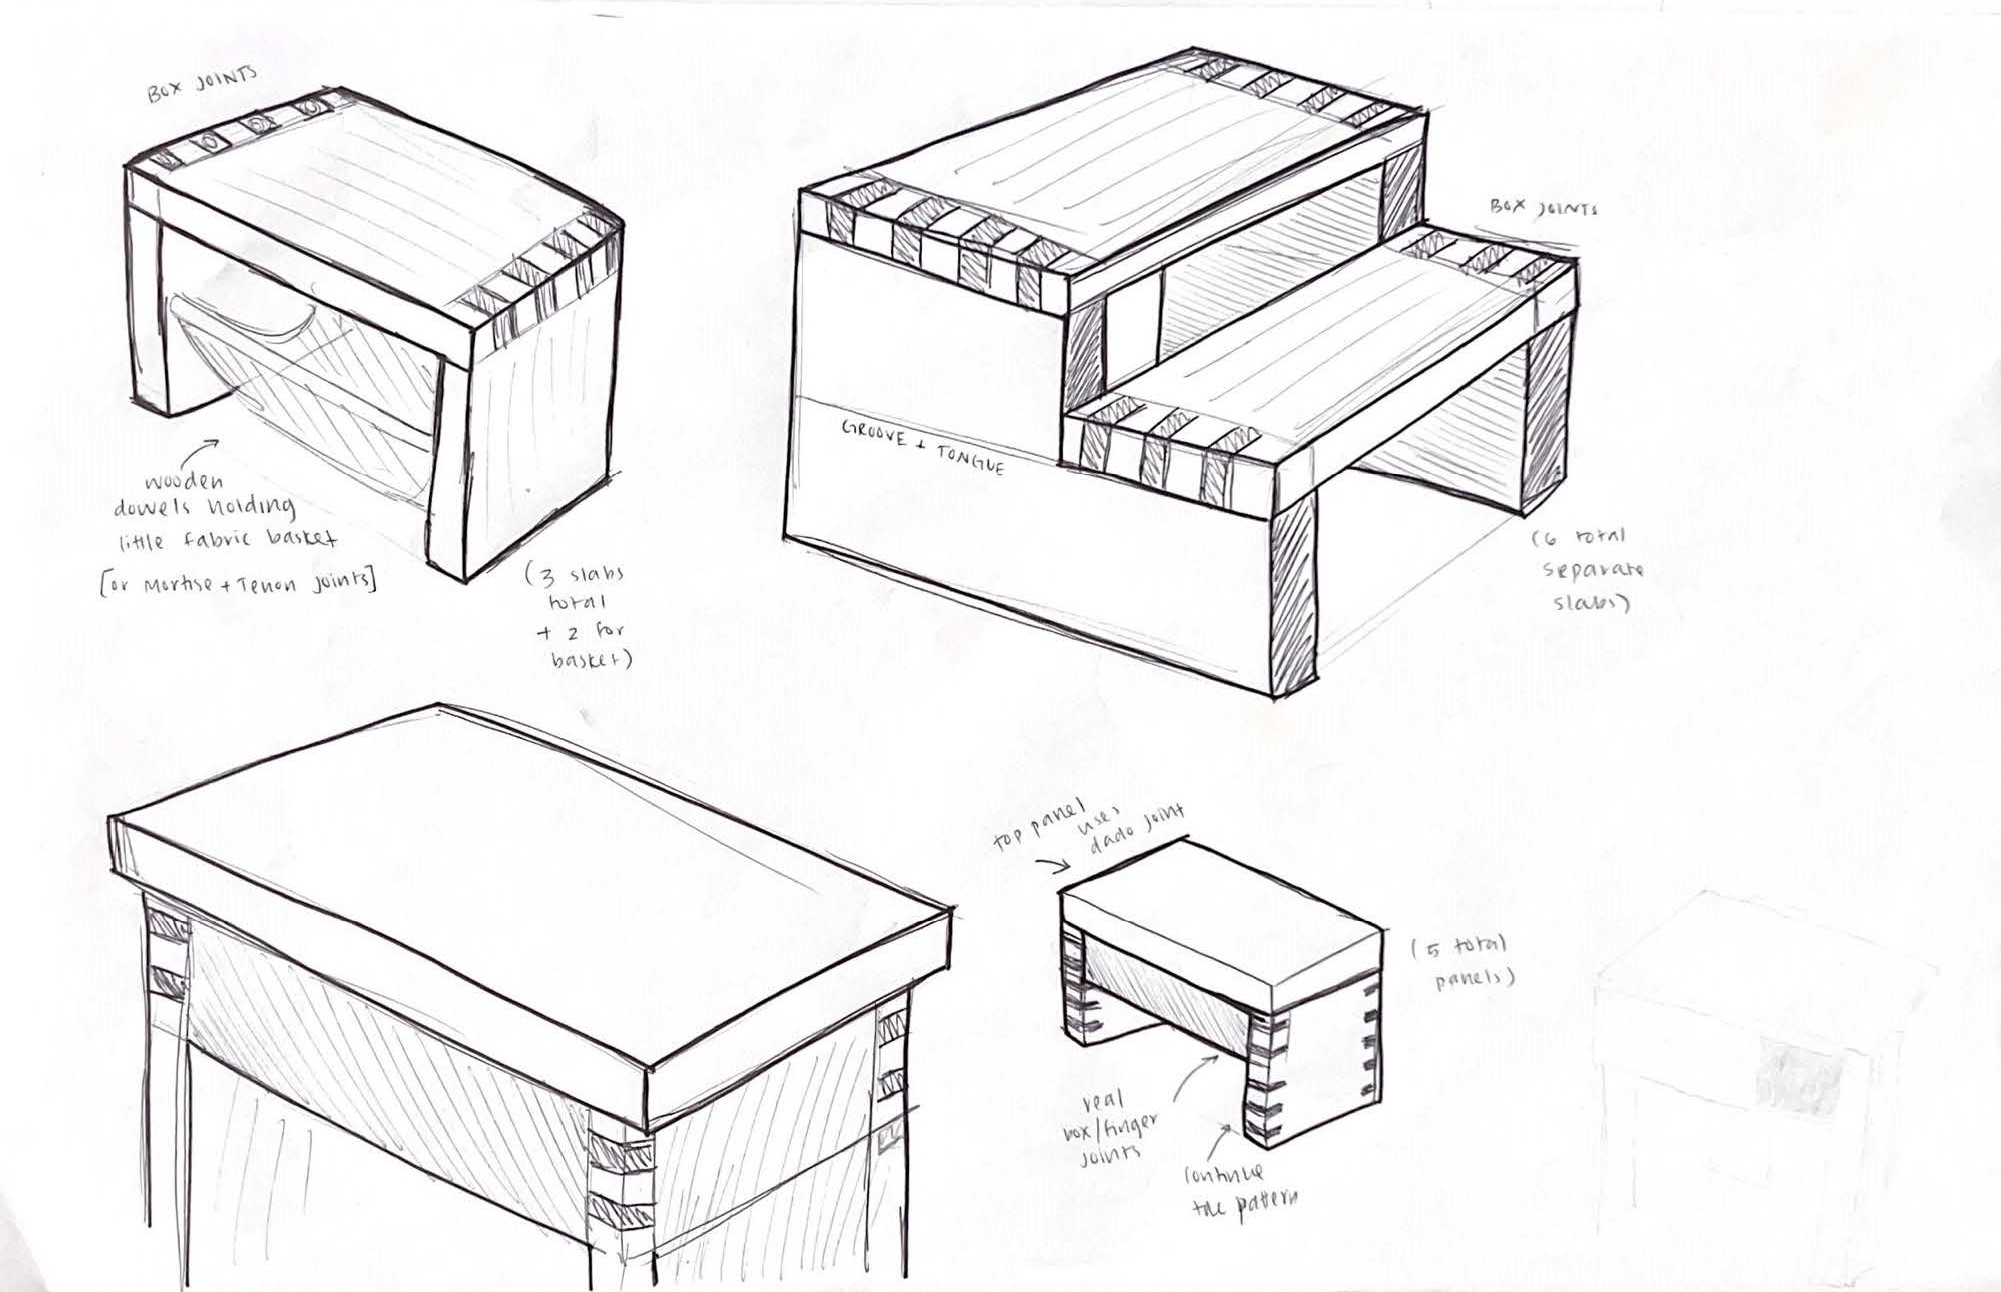 BOX JOINTS
wooden
dowels holding
little fabric basket
[or Mortise + Tenon joints]
(3 slabs
total
+ 2 for
basket)
BOX JOINTS
GROOVE + TONGUE
(6 total
separate
slabs)
top panel
uses
dado joint
(5 total
panels)
real
box/finger
joints
continue
the pattern